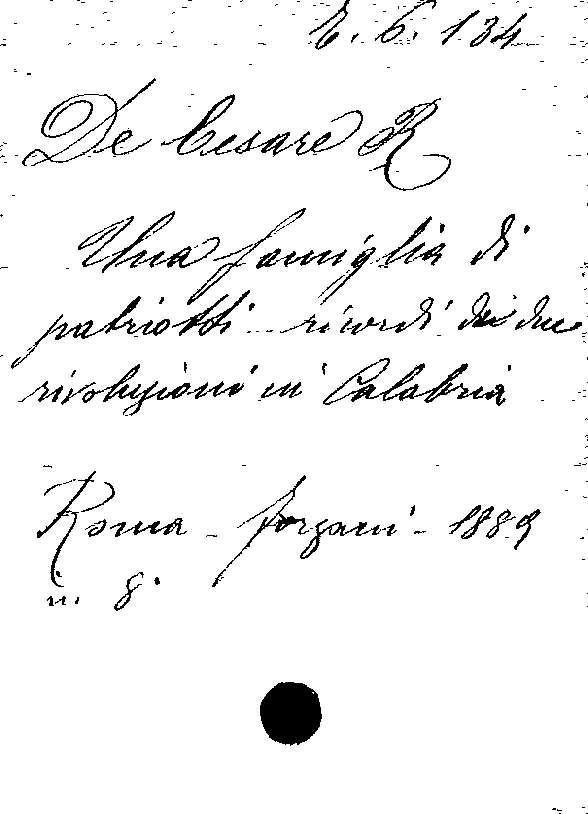 E. 6. 134
De Cesare R
Una famiglia di
patriotti - ricordi di due
rivoluzioni in Calabria
Roma - Forzani - 1889
in 8°